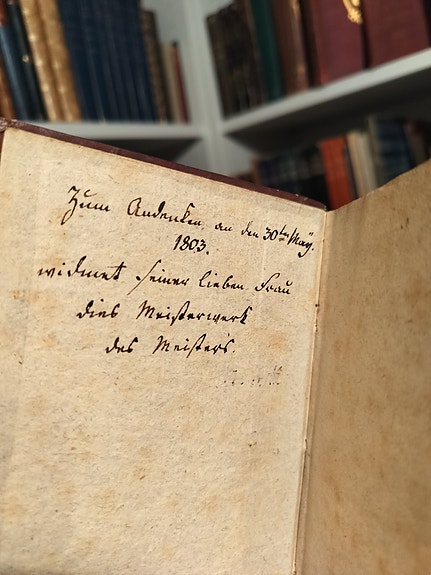 Zum Andenken an den 30ten May.
1803.
widmet seiner lieben Frau
dies Meisterwerk
des Meisters.